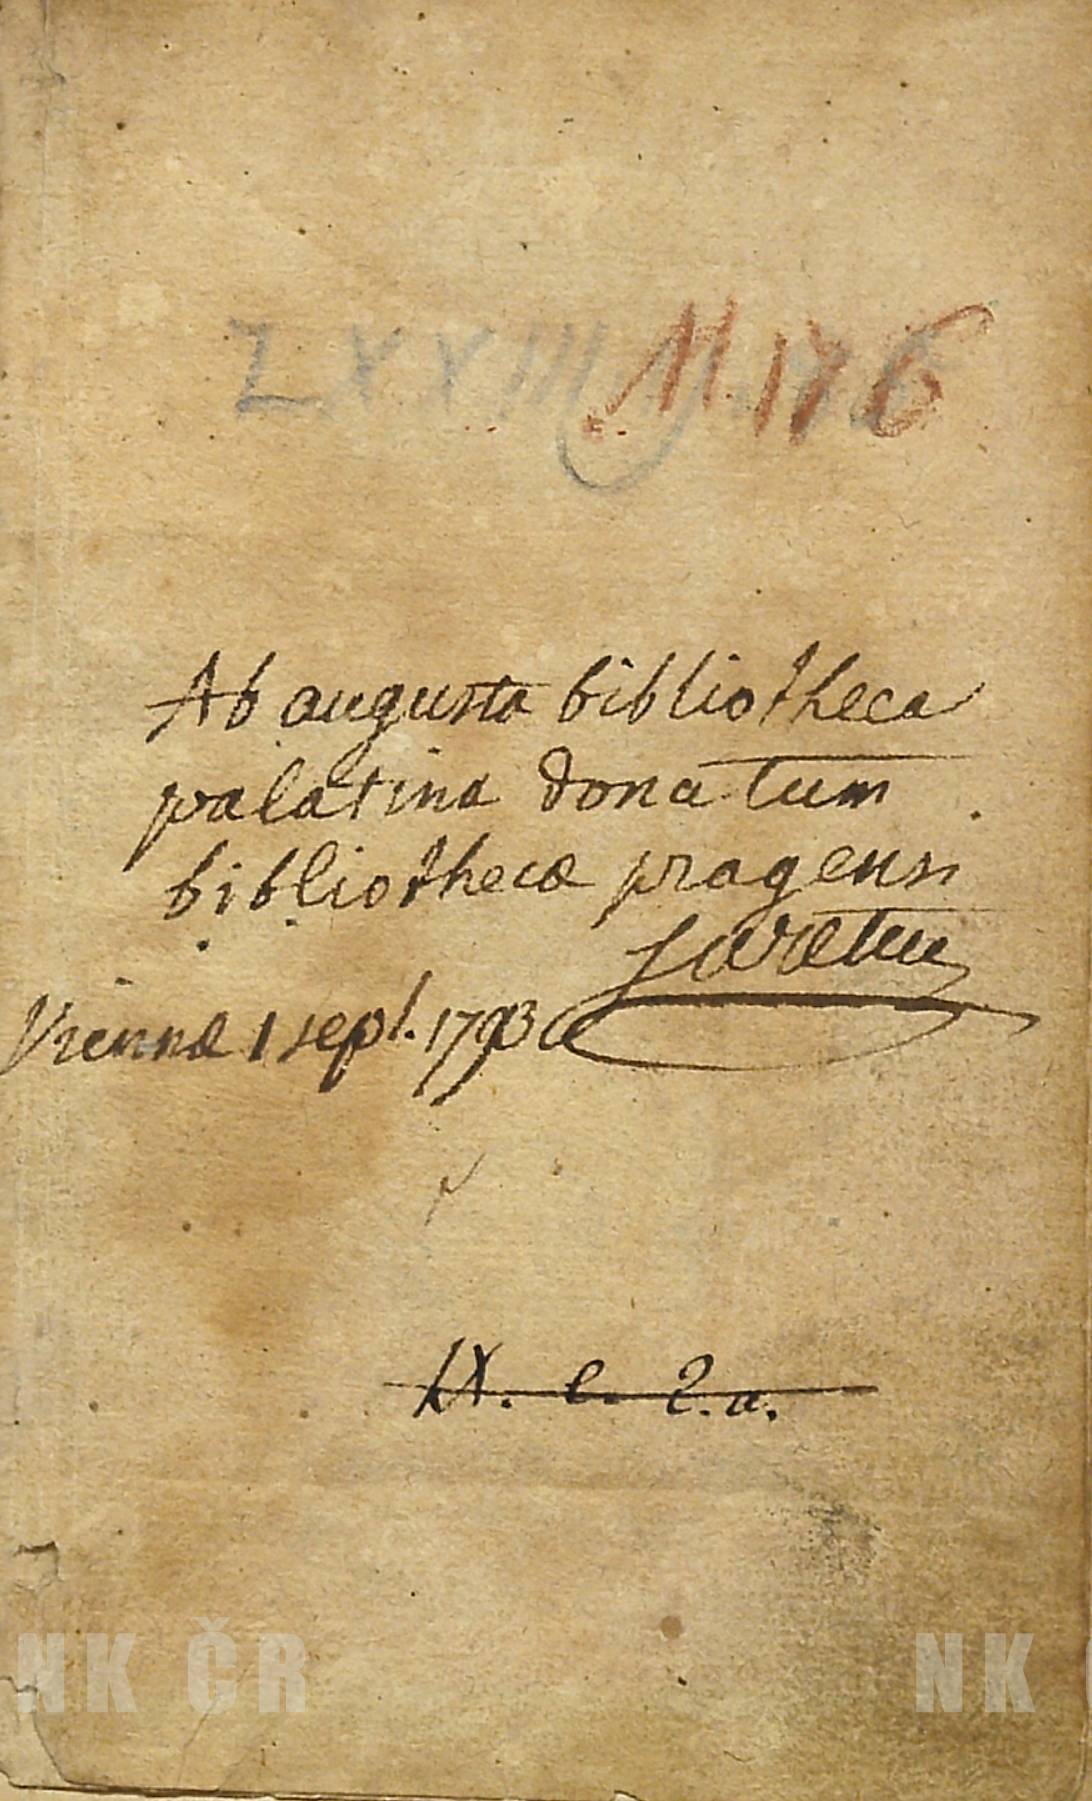 LXXIII
M. 176
Ab augusta bibliotheca
palatina donatum
bibliothecæ pragensi
Viennæ 1 sept. 1793
IX. e. 2.a.
NK ČR
NK